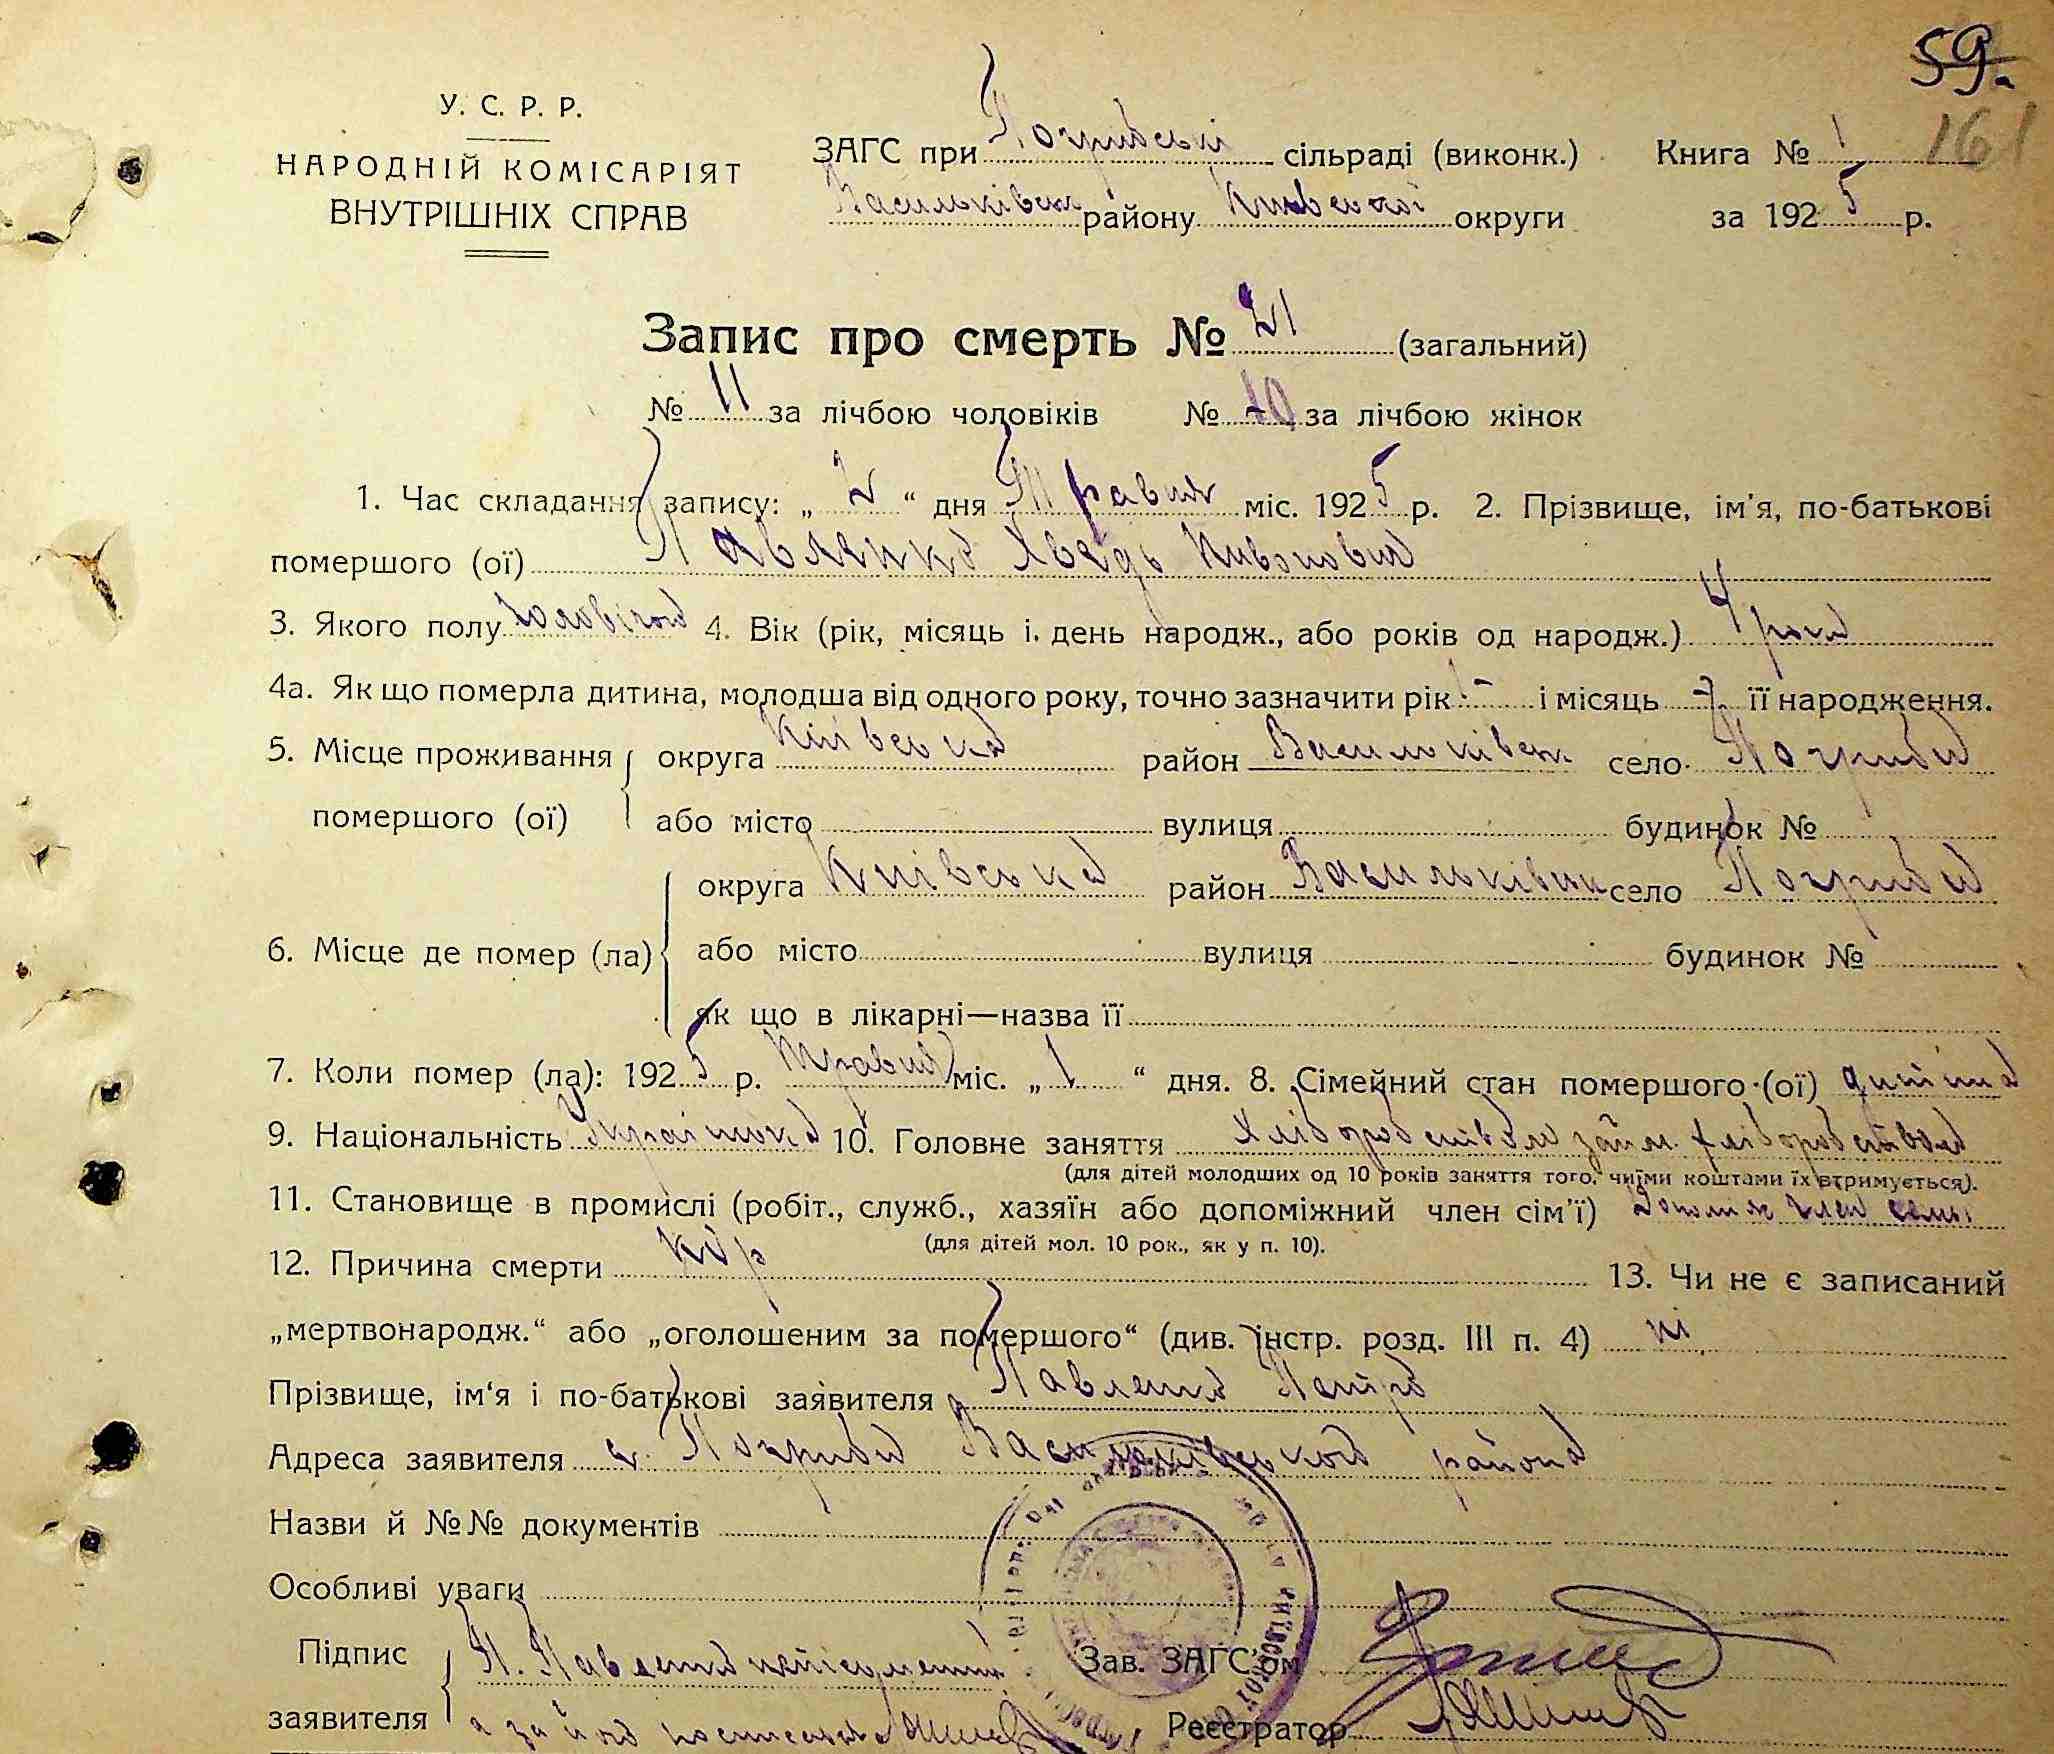 59.
161
У. С. Р. Р.
НАРОДНІЙ КОМІСАРІЯТ
ВНУТРІШНІХ СПРАВ
ЗАГС при Погрибські сільраді (виконк.) Книга № 1
Васильківськ району Київської округи за 1925 р.
Запис про смерть № 21 (загальний)
№ 11 за лічбою чоловіків № 10 за лічбою жінок
1. Час складання запису: „ 2 “ дня Травня міс. 1925 р. 2. Прізвище, ім'я, по-батькові
помершого (ої) Павленко Хведь
3. Якого полу 4. Вік (рік, місяць і день народж., або років од народж.) 4 роки
4а. Як що померла дитина, молодша від одного року, точно зазначити рік - і місяць - її народження.
5. Місце проживання округа Київська район Васильківськ село Погриби
помершого (ої) або місто вулиця будинок №
округа Київська район Васильківськ село Погриби
6. Місце де помер (ла) або місто вулиця будинок №
як що в лікарні—назва її
7. Коли помер (ла): 1925 р. Травня міс. „ 1 “ дня. 8. Сімейний стан помершого (ої) дитина
9. Національність 10. Головне заняття хліборобством займ. хліборобством
(для дітей молодших од 10 років заняття того, чиїми коштами їх втримується).
11. Становище в промислі (робіт., служб., хазяїн або допоміжний член сім'ї) член семьі
(для дітей мол. 10 рок., як у п. 10).
12. Причина смерти кір 13. Чи не є записаний
„мертвонародж.“ або „оголошеним за помершого“ (див. інстр. розд. III п. 4) ні
Прізвище, ім'я і по-батькові заявителя Павленко Петро
Адреса заявителя с. Погриби Васильківського района
Назви й №№ документів
Особливі уваги
Підпис П. Павленко Зав. ЗАГС'ом
заявителя а за його Реєстратор